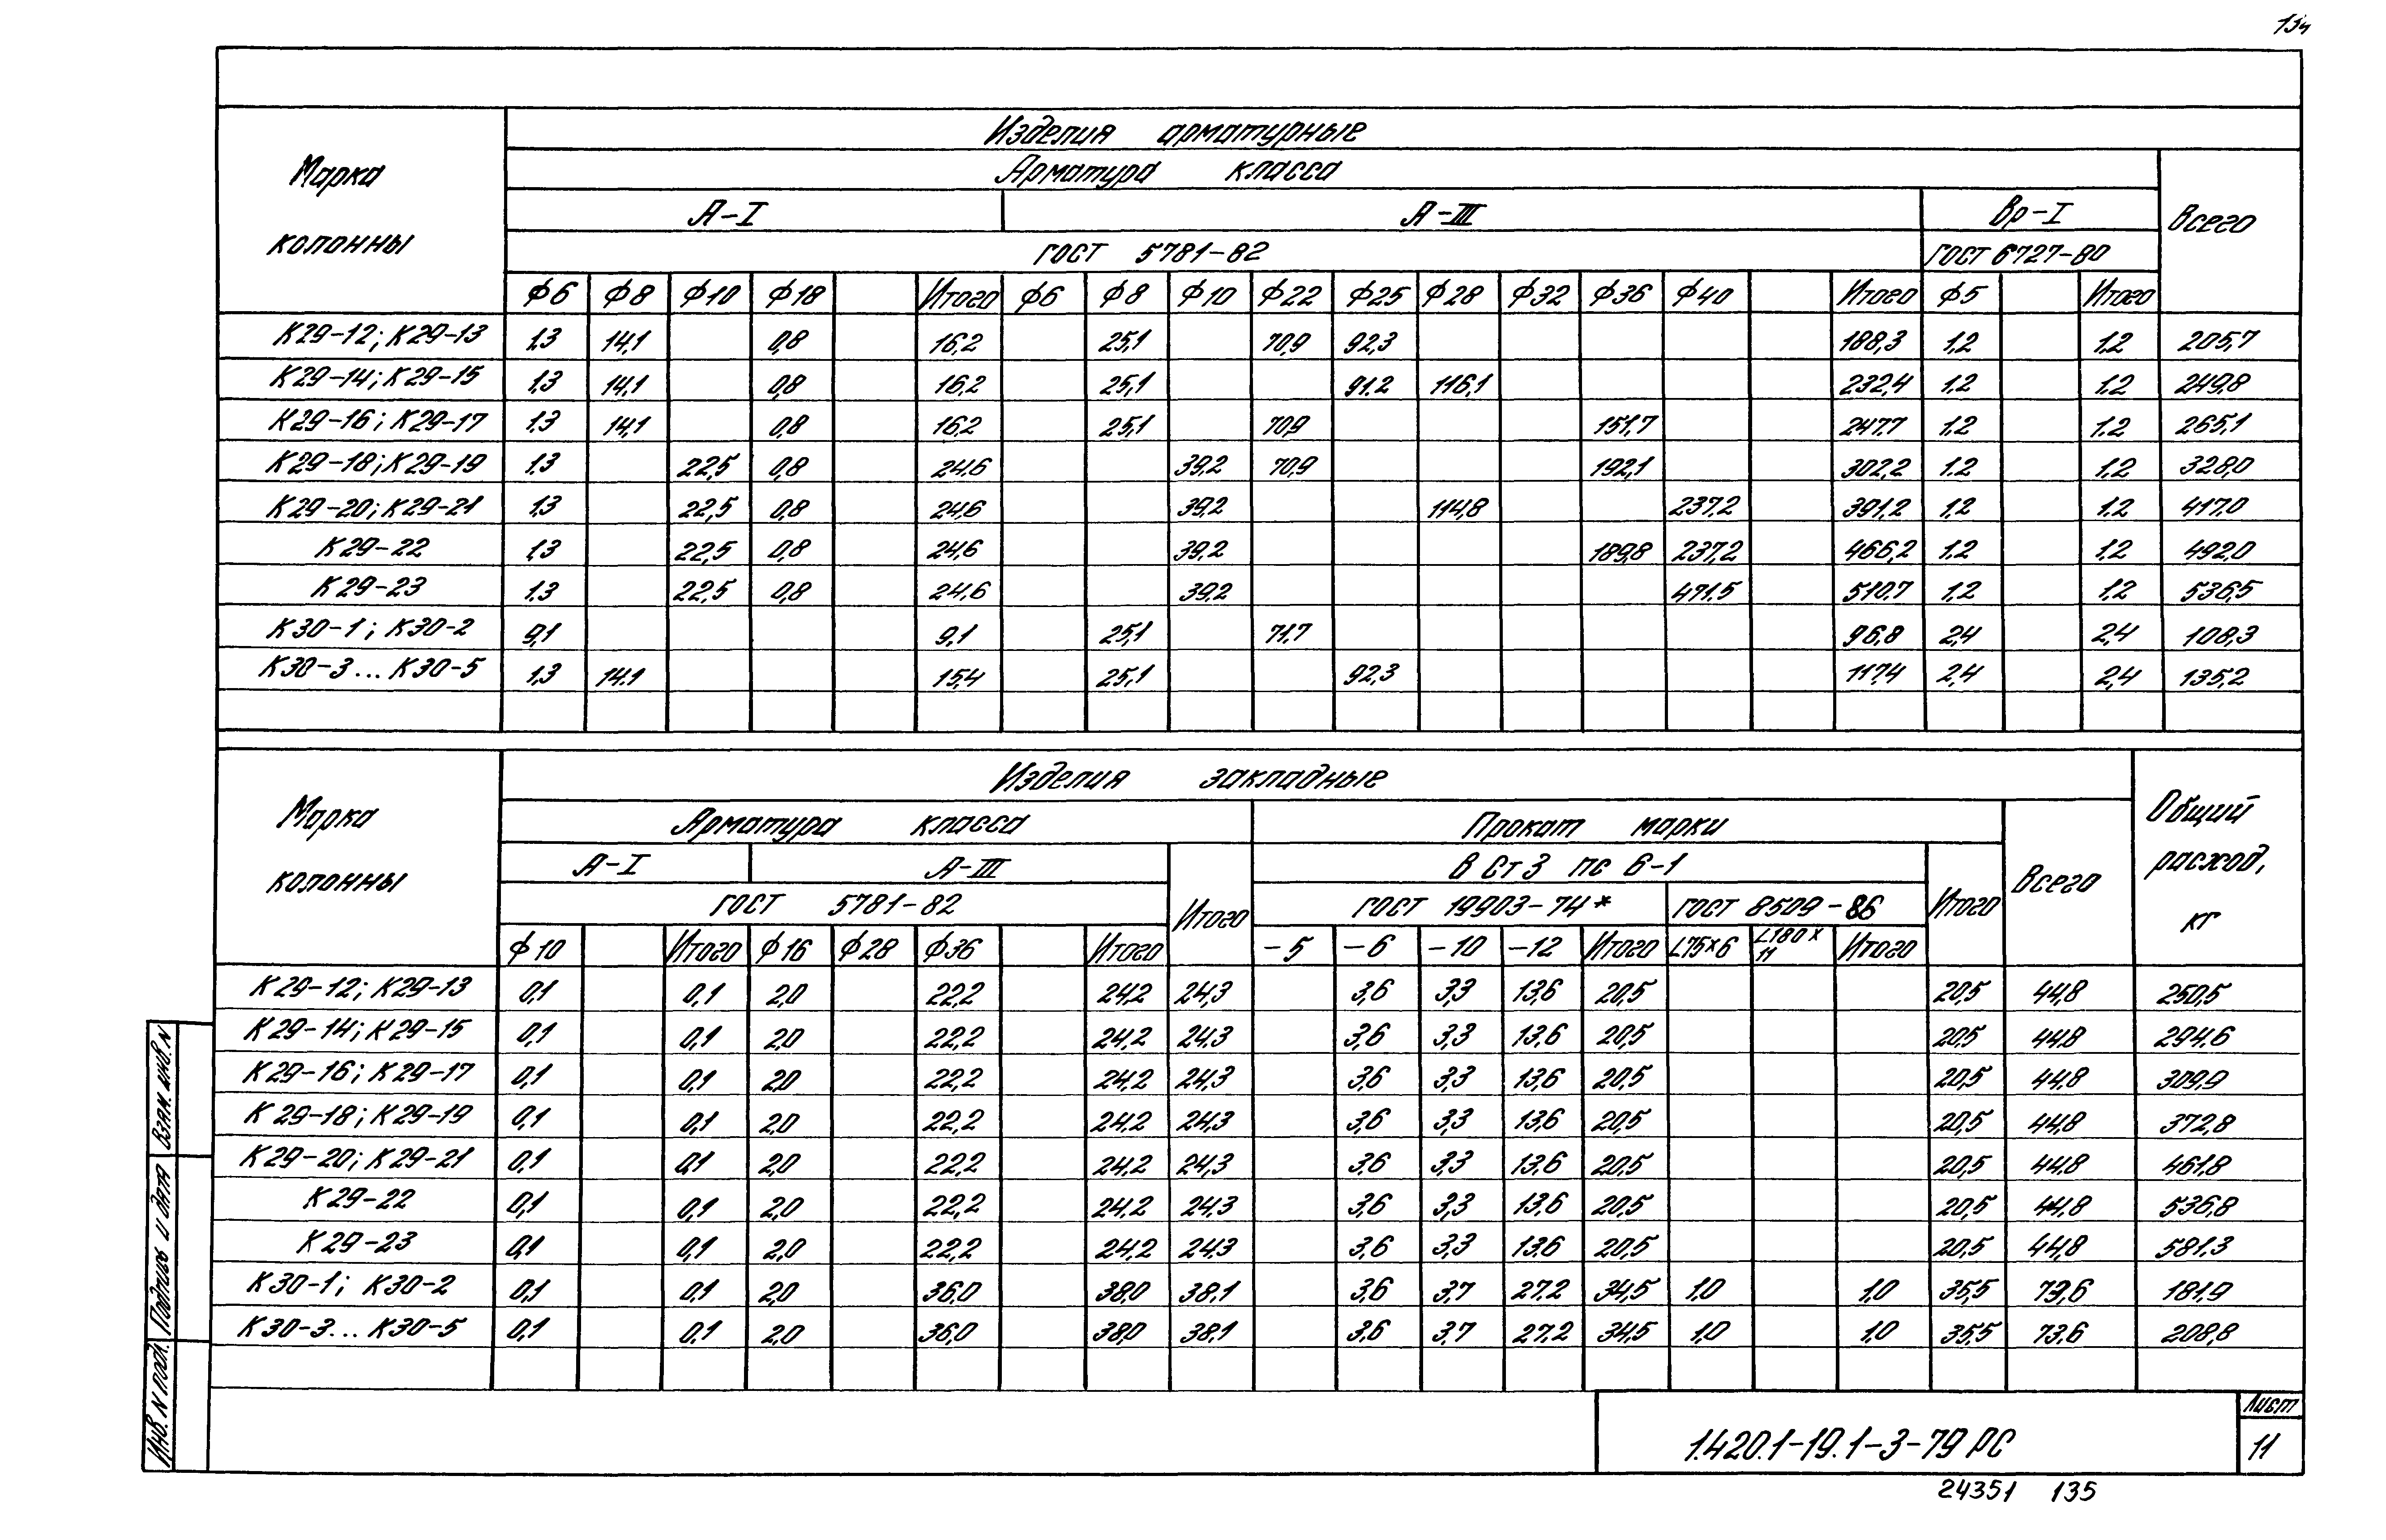 134
Изделия арматурные
Марка колонны
Арматура класса
Всего
А-I А-III Вр-I
ГОСТ 5781-82 ГОСТ 6727-80
ф6 ф8 ф10 ф18 Итого ф6 ф8 ф10 ф22 ф25 ф28 ф32 ф36 ф40 Итого ф5 Итого
К29-12; К29-13 1,3 14,1 0,8 16,2 25,1 70,9 92,3 188,3 1,2 1,2 205,7
К29-14; К29-15 1,3 14,1 0,8 16,2 25,1 91,2 116,1 232,4 1,2 1,2 249,8
К29-16; К29-17 1,3 14,1 0,8 16,2 25,1 70,9 151,7 247,7 1,2 1,2 265,1
К29-18; К29-19 1,3 22,5 0,8 24,6 39,2 70,9 192,1 302,2 1,2 1,2 328,0
К29-20; К29-21 1,3 22,5 0,8 24,6 39,2 114,8 237,2 391,2 1,2 1,2 417,0
К29-22 1,3 22,5 0,8 24,6 39,2 189,8 237,2 466,2 1,2 1,2 492,0
К29-23 1,3 22,5 0,8 24,6 39,2 471,5 510,7 1,2 1,2 536,5
К30-1; К30-2 9,1 9,1 25,1 71,7 96,8 2,4 2,4 108,3
К30-3...К30-5 1,3 14,1 15,4 25,1 92,3 117,4 2,4 2,4 135,2
Изделия закладные
Марка колонны
Общий расход, кг
Арматура класса Прокат марки
Всего
А-I А-III Итого В Ст 3 пс 6-1 Итого
ГОСТ 5781-82 ГОСТ 19903-74* ГОСТ 8509-86
ф10 Итого ф16 ф28 ф36 Итого -5 -6 -10 -12 Итого L75×6 L180×11 Итого
К29-12; К29-13 0,1 0,1 2,0 22,2 24,2 24,3 3,6 3,3 13,6 20,5 20,5 44,8 250,5
К29-14; К29-15 0,1 0,1 2,0 22,2 24,2 24,3 3,6 3,3 13,6 20,5 20,5 44,8 294,6
К29-16; К29-17 0,1 0,1 2,0 22,2 24,2 24,3 3,6 3,3 13,6 20,5 20,5 44,8 309,9
К29-18; К29-19 0,1 0,1 2,0 22,2 24,2 24,3 3,6 3,3 13,6 20,5 20,5 44,8 372,8
К29-20; К29-21 0,1 0,1 2,0 22,2 24,2 24,3 3,6 3,3 13,6 20,5 20,5 44,8 461,8
К29-22 0,1 0,1 2,0 22,2 24,2 24,3 3,6 3,3 13,6 20,5 20,5 44,8 536,8
К29-23 0,1 0,1 2,0 22,2 24,2 24,3 3,6 3,3 13,6 20,5 20,5 44,8 581,3
К30-1; К30-2 0,1 0,1 2,0 36,0 38,0 38,1 3,6 3,7 27,2 34,5 1,0 1,0 35,5 73,6 181,9
К30-3...К30-5 0,1 0,1 2,0 36,0 38,0 38,1 3,6 3,7 27,2 34,5 1,0 1,0 35,5 73,6 208,8
Взам. инв. N
Подпись и дата
Инв. N подл.
1.420.1-19.1-3-79 РС
Лист
11
24351 135